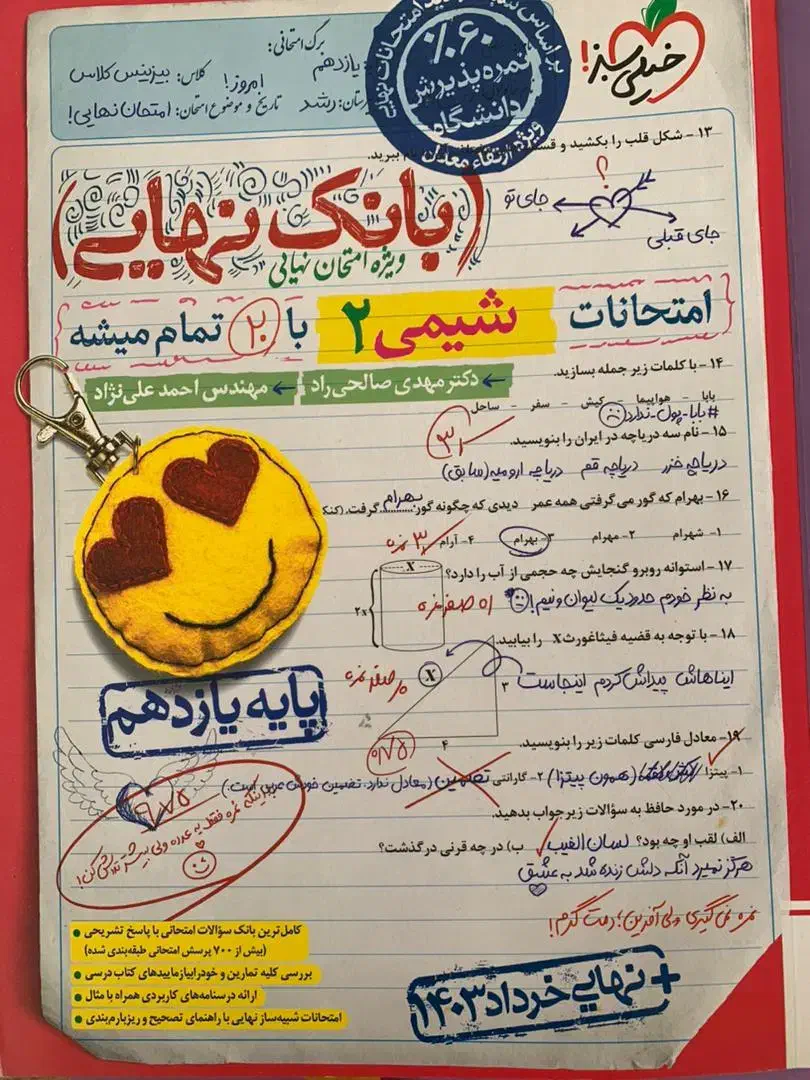 خیلی سبز!
برگ امتحانی:
یازدهم
کلاس: بیزنیس کلاس
امروز!
رشد
تاریخ و موضوع امتحان: امتحان نهایی!
٪۶۰
نمره پذیرش
دانشگاه
ویژه ارتقاء معدل
۱۳- شکل قلب را بکشید و
نام ببرید.
؟
جای تو
جای قبلی
(بانک نهایی)
ویژه امتحان نهایی
امتحانات شیمی ۲ با ۲۰ تمام میشه
دکتر مهدی صالحی راد
مهندس احمد علی نژاد
۱۴- با کلمات زیر جمله بسازید.
بابا - هواپیما - کیش - سفر - ساحل
#بابا-پول-ندارد
۱۵- نام سه دریاچه در ایران را بنویسید.
دریاچه خزر دریاچه قم دریاچه ارومیه (سابق)
۱۶- بهرام که گور می گرفتی همه عمر دیدی که چگونه گور بهرام گرفت.
۱- شهرام ۲- مهرام ۳- بهرام ۴- آرام
۱۷- استوانه روبرو گنجایش چه حجمی از آب را دارد؟
X
۲x
به نظر خودم حدود یک لیوان و نیم!
۱۸- با توجه به قضیه فیثاغورث X را بیابید.
ایناهاش پیداش کردم اینجاست
X
۳
۴
پایه یازدهم
۱۹- معادل فارسی کلمات زیر را بنویسید.
۱- پیتزا (همون پیتزا) ۲- گارانتی تضمین (معادل ندارد. تضمین خودش عربی است.)
۲۰- در مورد حافظ به سؤالات زیر جواب بدهید.
الف) لقب او چه بود؟ لسان الغیب ب) در چه قرنی درگذشت؟
هرگز نمیرد آنکه دلش زنده شد به عشق
نمره نمی گیری ولی آفرین؛ دمت گرم!
کامل‌ترین بانک سؤالات امتحانی با پاسخ تشریحی
(بیش از ۷۰۰ پرسش امتحانی طبقه‌بندی شده)
بررسی کلیه تمارین و خودرابیازماییدهای کتاب درسی
ارائه درسنامه‌های کاربردی همراه با مثال
امتحانات شبیه‌ساز نهایی با راهنمای تصحیح و ریزبارم‌بندی
+ نهایی خرداد ۱۴۰۳